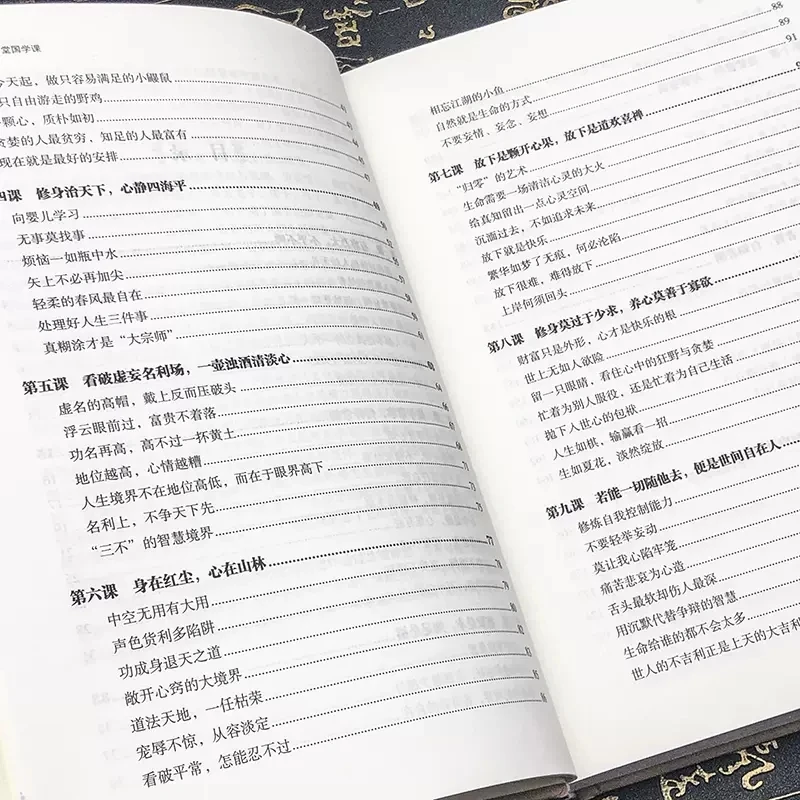 堂国学课
今天起，做只容易满足的小鼹鼠
只自由游走的野鸡
颗心，质朴如初
贪婪的人最贫穷，知足的人最富有
现在就是最好的安排
四课 修身治天下，心静四海平
向婴儿学习
无事莫找事
烦恼一如瓶中水
矢上不必再加尖
轻柔的春风最自在
处理好人生三件事
真糊涂才是“大宗师”
第五课 看破虚妄名利场，一壶浊酒清淡心
虚名的高帽，戴上反而压破头
浮云眼前过，富贵不着落
功名再高，高不过一抔黄土
地位越高，心情越糟
人生境界不在地位高低，而在于眼界高下
名利上，不争天下先
“三不”的智慧境界
第六课 身在红尘，心在山林 77
中空无用有大用 78
声色货利多陷阱 79
功成身退天之道 80
敞开心窍的大境界 82
道法天地，一任枯荣 83
宠辱不惊，从容淡定 85
看破平常，怎能忍不过 86
88
相忘江湖的小鱼 89
自然就是生命的方式 91
不要妄情、妄念、妄想
第七课 放下是颗开心果，放下是道欢喜禅
“归零”的艺术
生命需要一场清洁心灵的大火
给真知留出一点心灵空间
沉湎过去，不如追求未来
放下就是快乐
繁华如梦了无痕，何必沦陷
放下很难，难得放下
上岸何须回头
第八课 修身莫过于少求，养心莫善于寡欲
财富只是外形，心才是快乐的根
世上无如人欲险
留一只眼睛，看住心中的狂野与贪婪
忙着为别人服役，还是忙着为自己生活
抛下人世心的包袱
人生如棋，输赢看一招
生如夏花，淡然绽放
第九课 若能一切随他去，便是世间自在人
修炼自我控制能力
不要轻举妄动
莫让我心陷牢笼
痛苦悲哀为心造
舌头最软却伤人最深
用沉默代替争辩的智慧
生命给谁的都不会太多
世人的不吉利正是上天的大吉利